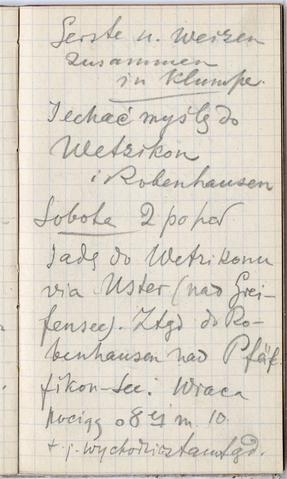 Gerste u. Weizen
zusammen
in Klumpe.
Jechać myślę do
Wetzikon
i Robenhausen
Sobota 2 po poł
Jadę do Wetzikonu
via Uster (nad Grei-
fensee). Ztąd do Ro-
benhausen nad Pfäf-
fikon-See. Wraca
pociąg o 8 ej m. 10
t. j. wychodzi stamtąd.